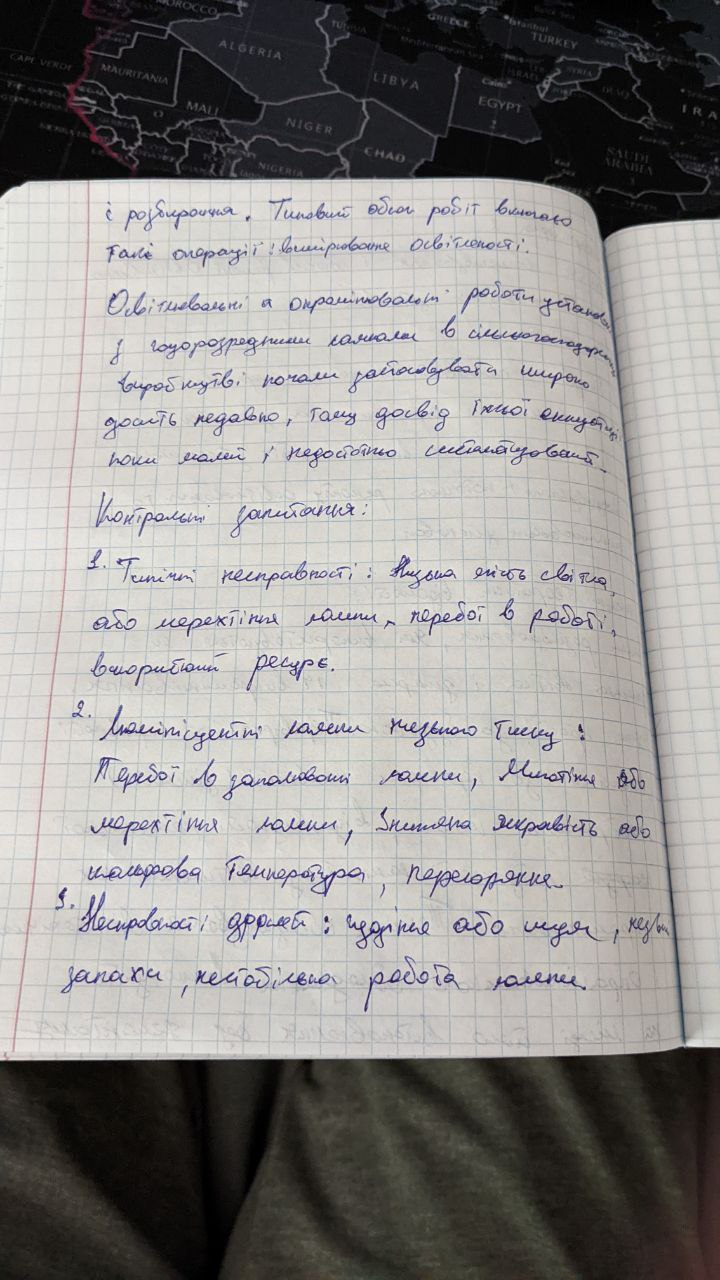 MOROCCO
ALGERIA
TUNISIA
LIBYA
EGYPT
GREECE
Istanbul
TURKEY
Mediterranean Sea
SYRIA
ISRAEL
IRAQ
IRA
SAUDI
ARABIA
CAPE VERDE
MAURITANIA
MALI
NIGER
CHAD
NIGERIA
і розбирання. Типовий обсяг робіт включає
такі операції: вимірювання освітленості.
Освітлювальні а опромінювальні роботи установки
з газорозрядними лампами в сільськогосподарському
виробництві почали застосовувати широко
досить недавно, тому досвід їхньої експлуатації
поки малий і недостатньо систематизований.
Контрольні запитання:
1. Типічні несправності: Низька якість світла,
або мерехтіння лампи, перебої в роботі,
використаний ресурс.
2. Люмінісцентні лампи низького тиску:
Перебої в запалюванні лампи, Миготіння або
мерехтіння лампи, Знижена яскравість або
кольорова температура, перегоряння.
3. Несправності дрлей: гудіння або шум,
запахи, нестабільна робота лампи.